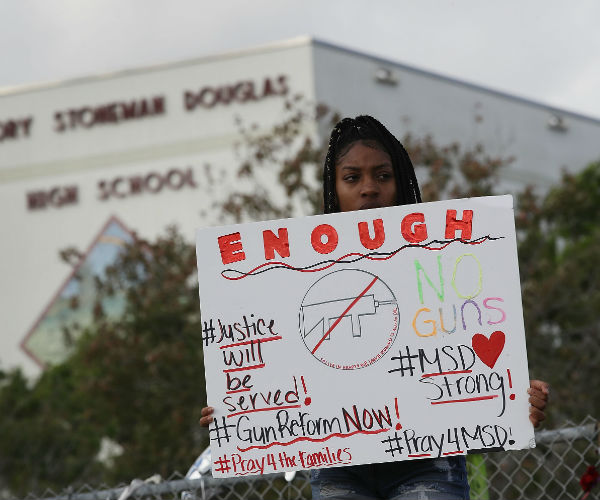 ORY STONEMAN DOUGLAS
HIGH SCHOOL
ENOUGH
NO
GUNS
#Justice
will
be
served!
#MSD
Strong!
#GunReformNow!
#Pray4MSD!
#Pray4the families